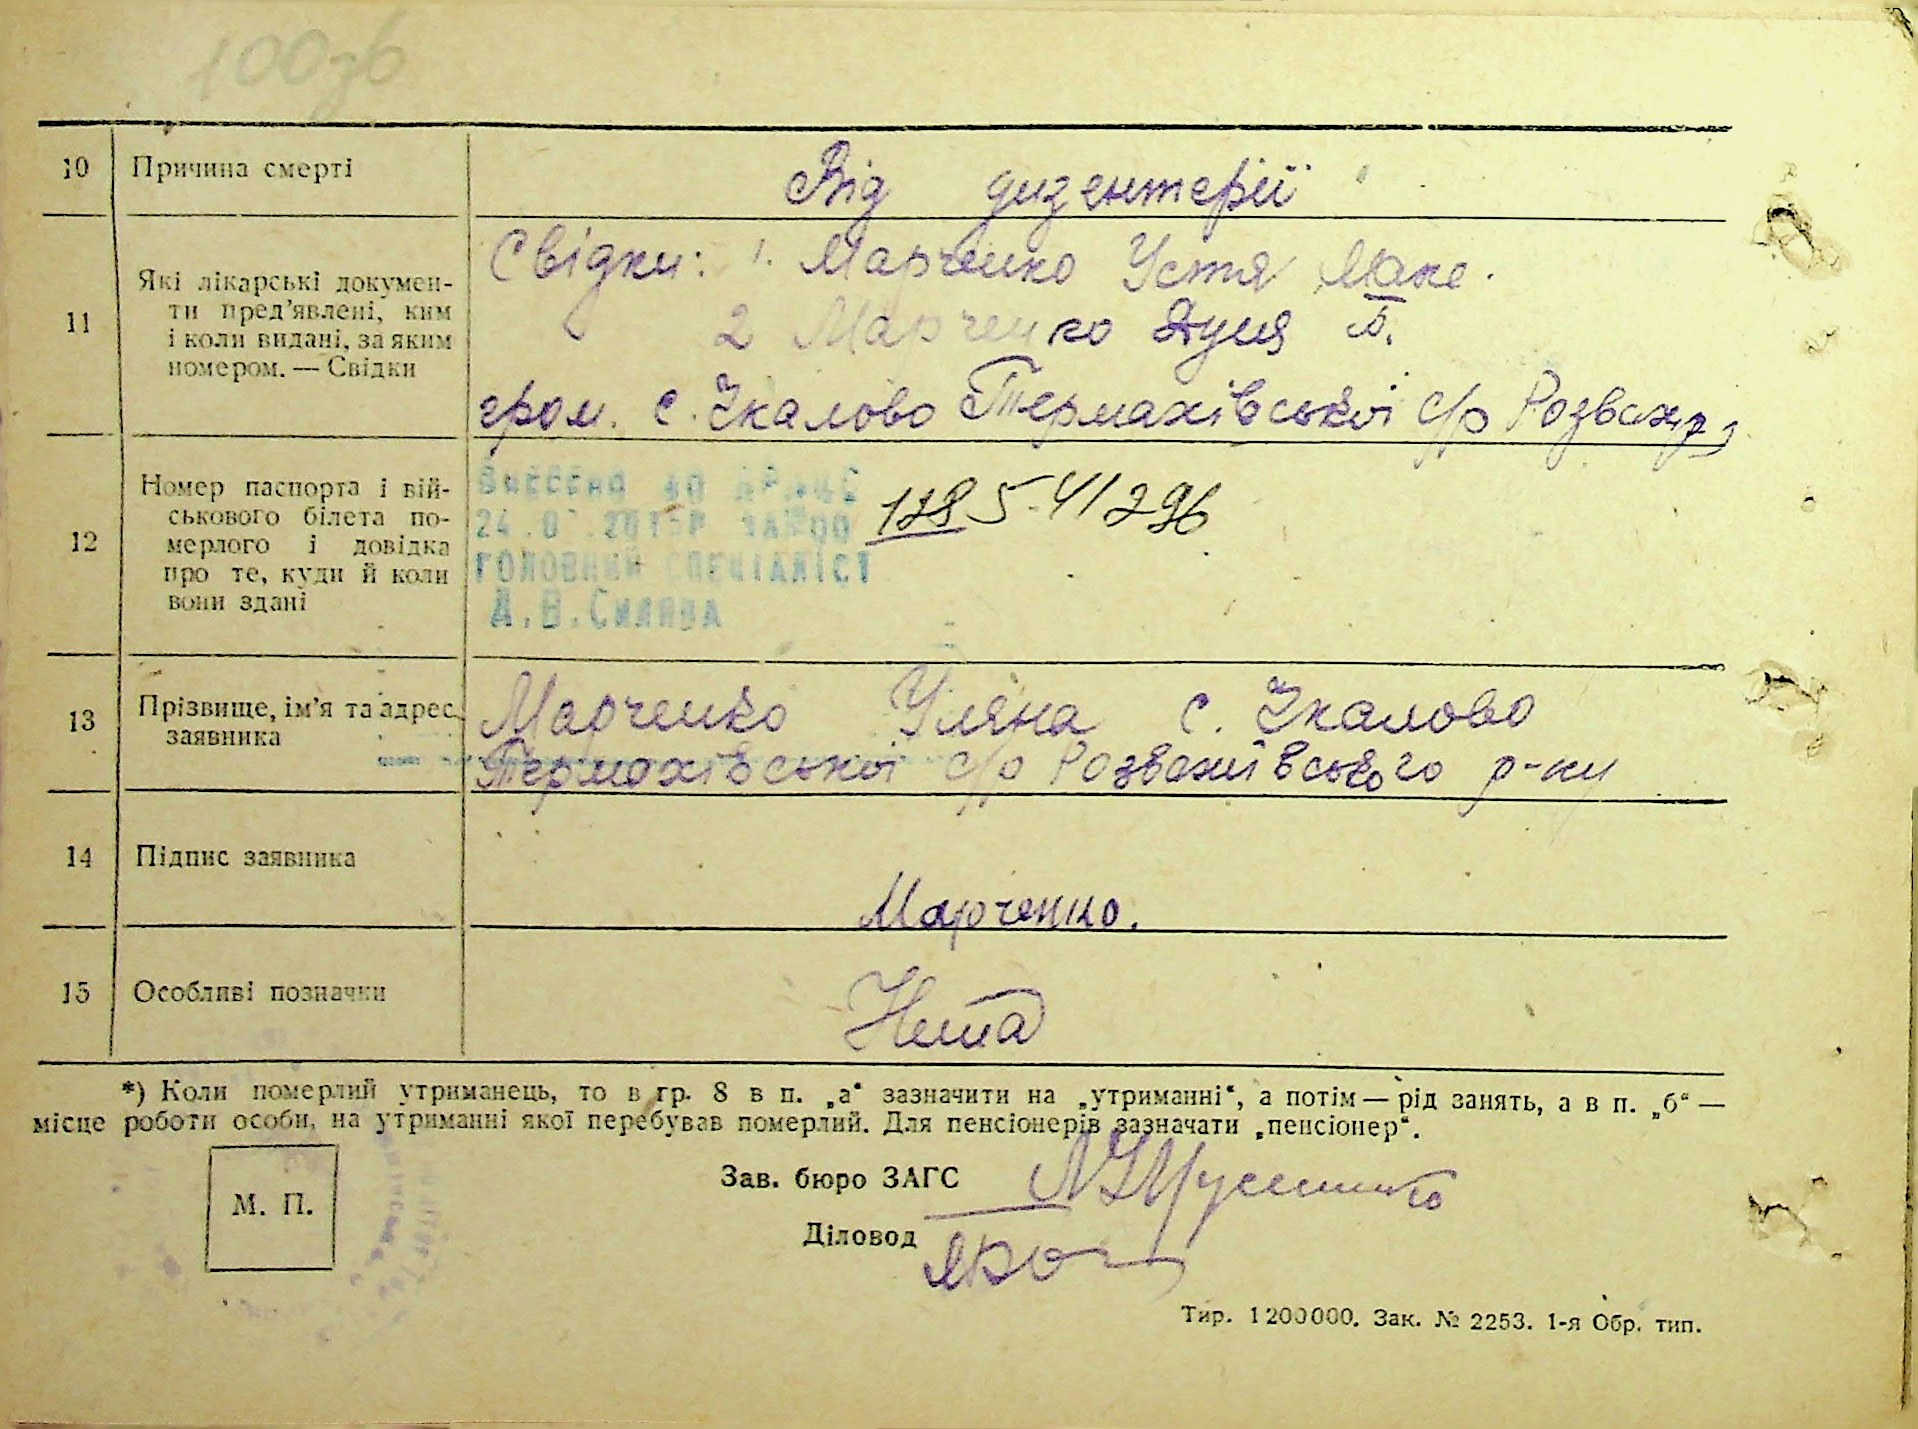 100зв
10 Причина смерті Від дизентерії
11 Які лікарські докумен-
ти пред'явлені, ким
і коли видані, за яким
номером. — Свідки
Свідки: 1. Марченко Устя Макс.
2 Марченко
гром. с. Чкалово Термахівської с/р Розваж,
12 Номер паспорта і вій-
ськового білета по-
мерлого і довідка
про те, куди й коли
вони здані
Внесено до ДРАЦС
24.0
ГОЛОВНИЙ СПЕЦІАЛІСТ
128 5-41/296
13 Прізвище, ім'я та адрес.
заявника
Марченко Уляна с. Чкалово
Термахівської с/р Розважівського р-ну
14 Підпис заявника Марченко.
15 Особливі позначки Нема
*) Коли померлий утриманець, то в гр. 8 в п. „а“ зазначити на „утриманні“, а потім — рід занять, а в п. „б“ —
місце роботи особи, на утриманні якої перебував померлий. Для пенсіонерів зазначати „пенсіонер“.
М. П.
Зав. бюро ЗАГС
Діловод
Тир. 1200000. Зак. № 2253. 1-я Обр. тип.